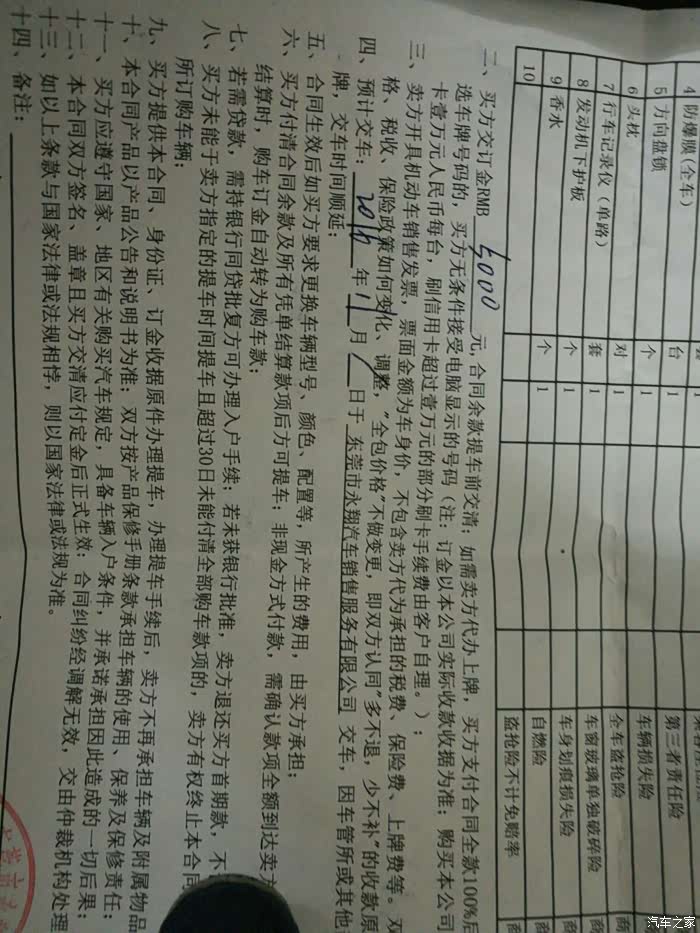 4 防爆膜(全车) 套 1 第三者责任险 商
5 方向盘锁 台 1 车辆损失险 商
6 头枕 个 1 全车盗抢险 商
7 行车记录仪(单路) 对 1 车窗玻璃单独破碎险 商
8 发动机下护板 套 1 车身划痕损失险 商
9 香水 个 1 自燃险 商
10 个 1 盗抢险不计免赔率 商
二、买方交订金RMB 5000 元,合同余款提车前交清;如需卖方代办上牌,买方支付合同全款100%后
选车牌号码的,买方无条件接受电脑显示的号码(注:订金以本公司实际收款收据为准;购买本公司
卡壹万元人民币每台,刷信用卡超过壹万元的部分刷卡手续费由客户自理。);
三、卖方开具机动车销售发票,票面金额为车身价,不包含卖方代为承担的税费、保险费、上牌费等。双
格、税收、保险政策如何变化、调整,"全包价格"不做变更,即双方认同"多不退,少不补"的收款原
四、预计交车: 2016 年 11 月 日于 东莞市永翔汽车销售服务有限公司 交车,因车管所或其他
牌,交车时间顺延;
五、合同生效后如买方要求更换车辆型号、颜色、配置等,所产生的费用,由买方承担;
六、买方付清合同余款及所有凭单结算款项后方可提车;非现金方式付款,需确认款项全额到达卖方
结算时,购车订金自动转为购车款;
七、若需贷款,需持银行同贷批复方可办理入户手续;若未获银行批准,卖方退还买方首期款,不
八、买方未能于卖方指定的提车时间提车且超过30日未能付清全部购车款项的,卖方有权终止本合同
所订购车辆;
九、买方提供本合同、身份证、订金收据原件办理提车,办理提车手续后,卖方不再承担车辆及附属物品
十、本合同产品以产品公告和说明书为准;双方按产品保修手册条款承担车辆的使用、保养及保修责任;
十一、买方应遵守国家、地区有关购买汽车规定,具备车辆入户条件,并承诺承担因此造成的一切后果;
十二、本合同双方签名、盖章且买方交清应付定金后正式生效;合同纠纷经调解无效,交由仲裁机构处理
十三、如以上条款与国家法律或法规相悖,则以国家法律或法规为准。
十四、备注:
汽车之家